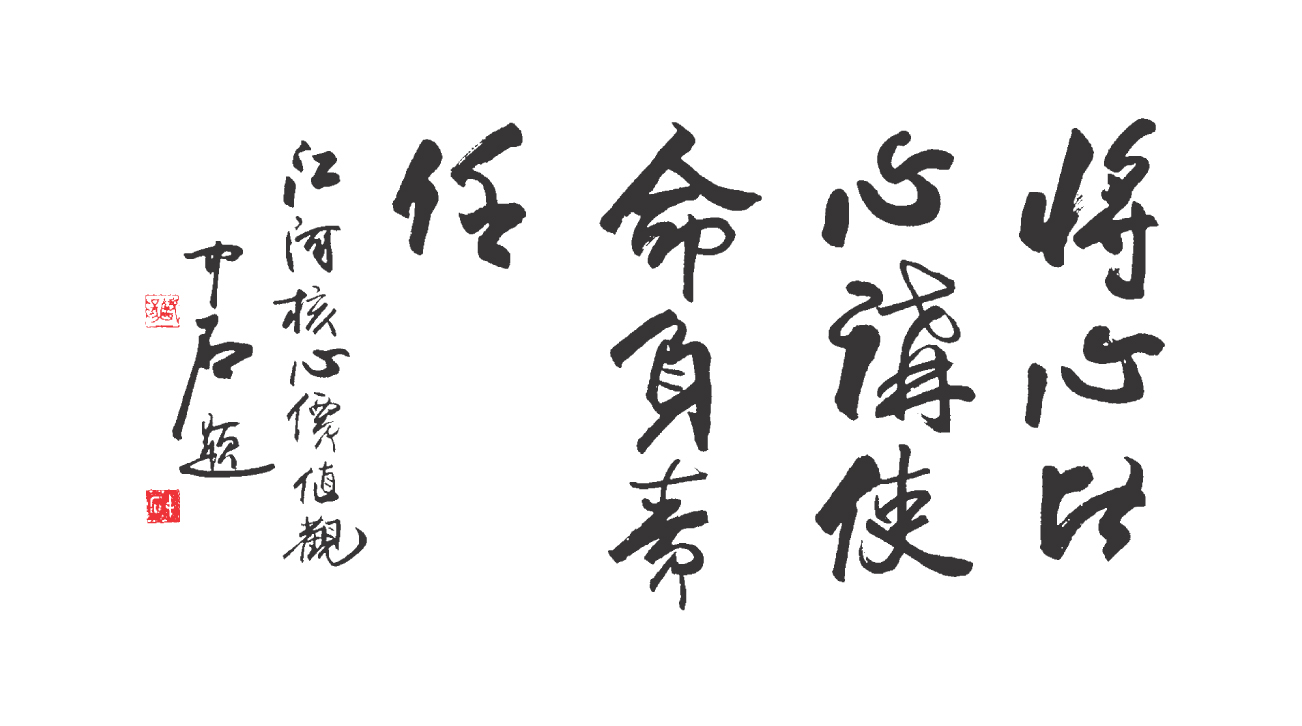 將心比
心講使
命負責
任
江河核心價值觀
中石題